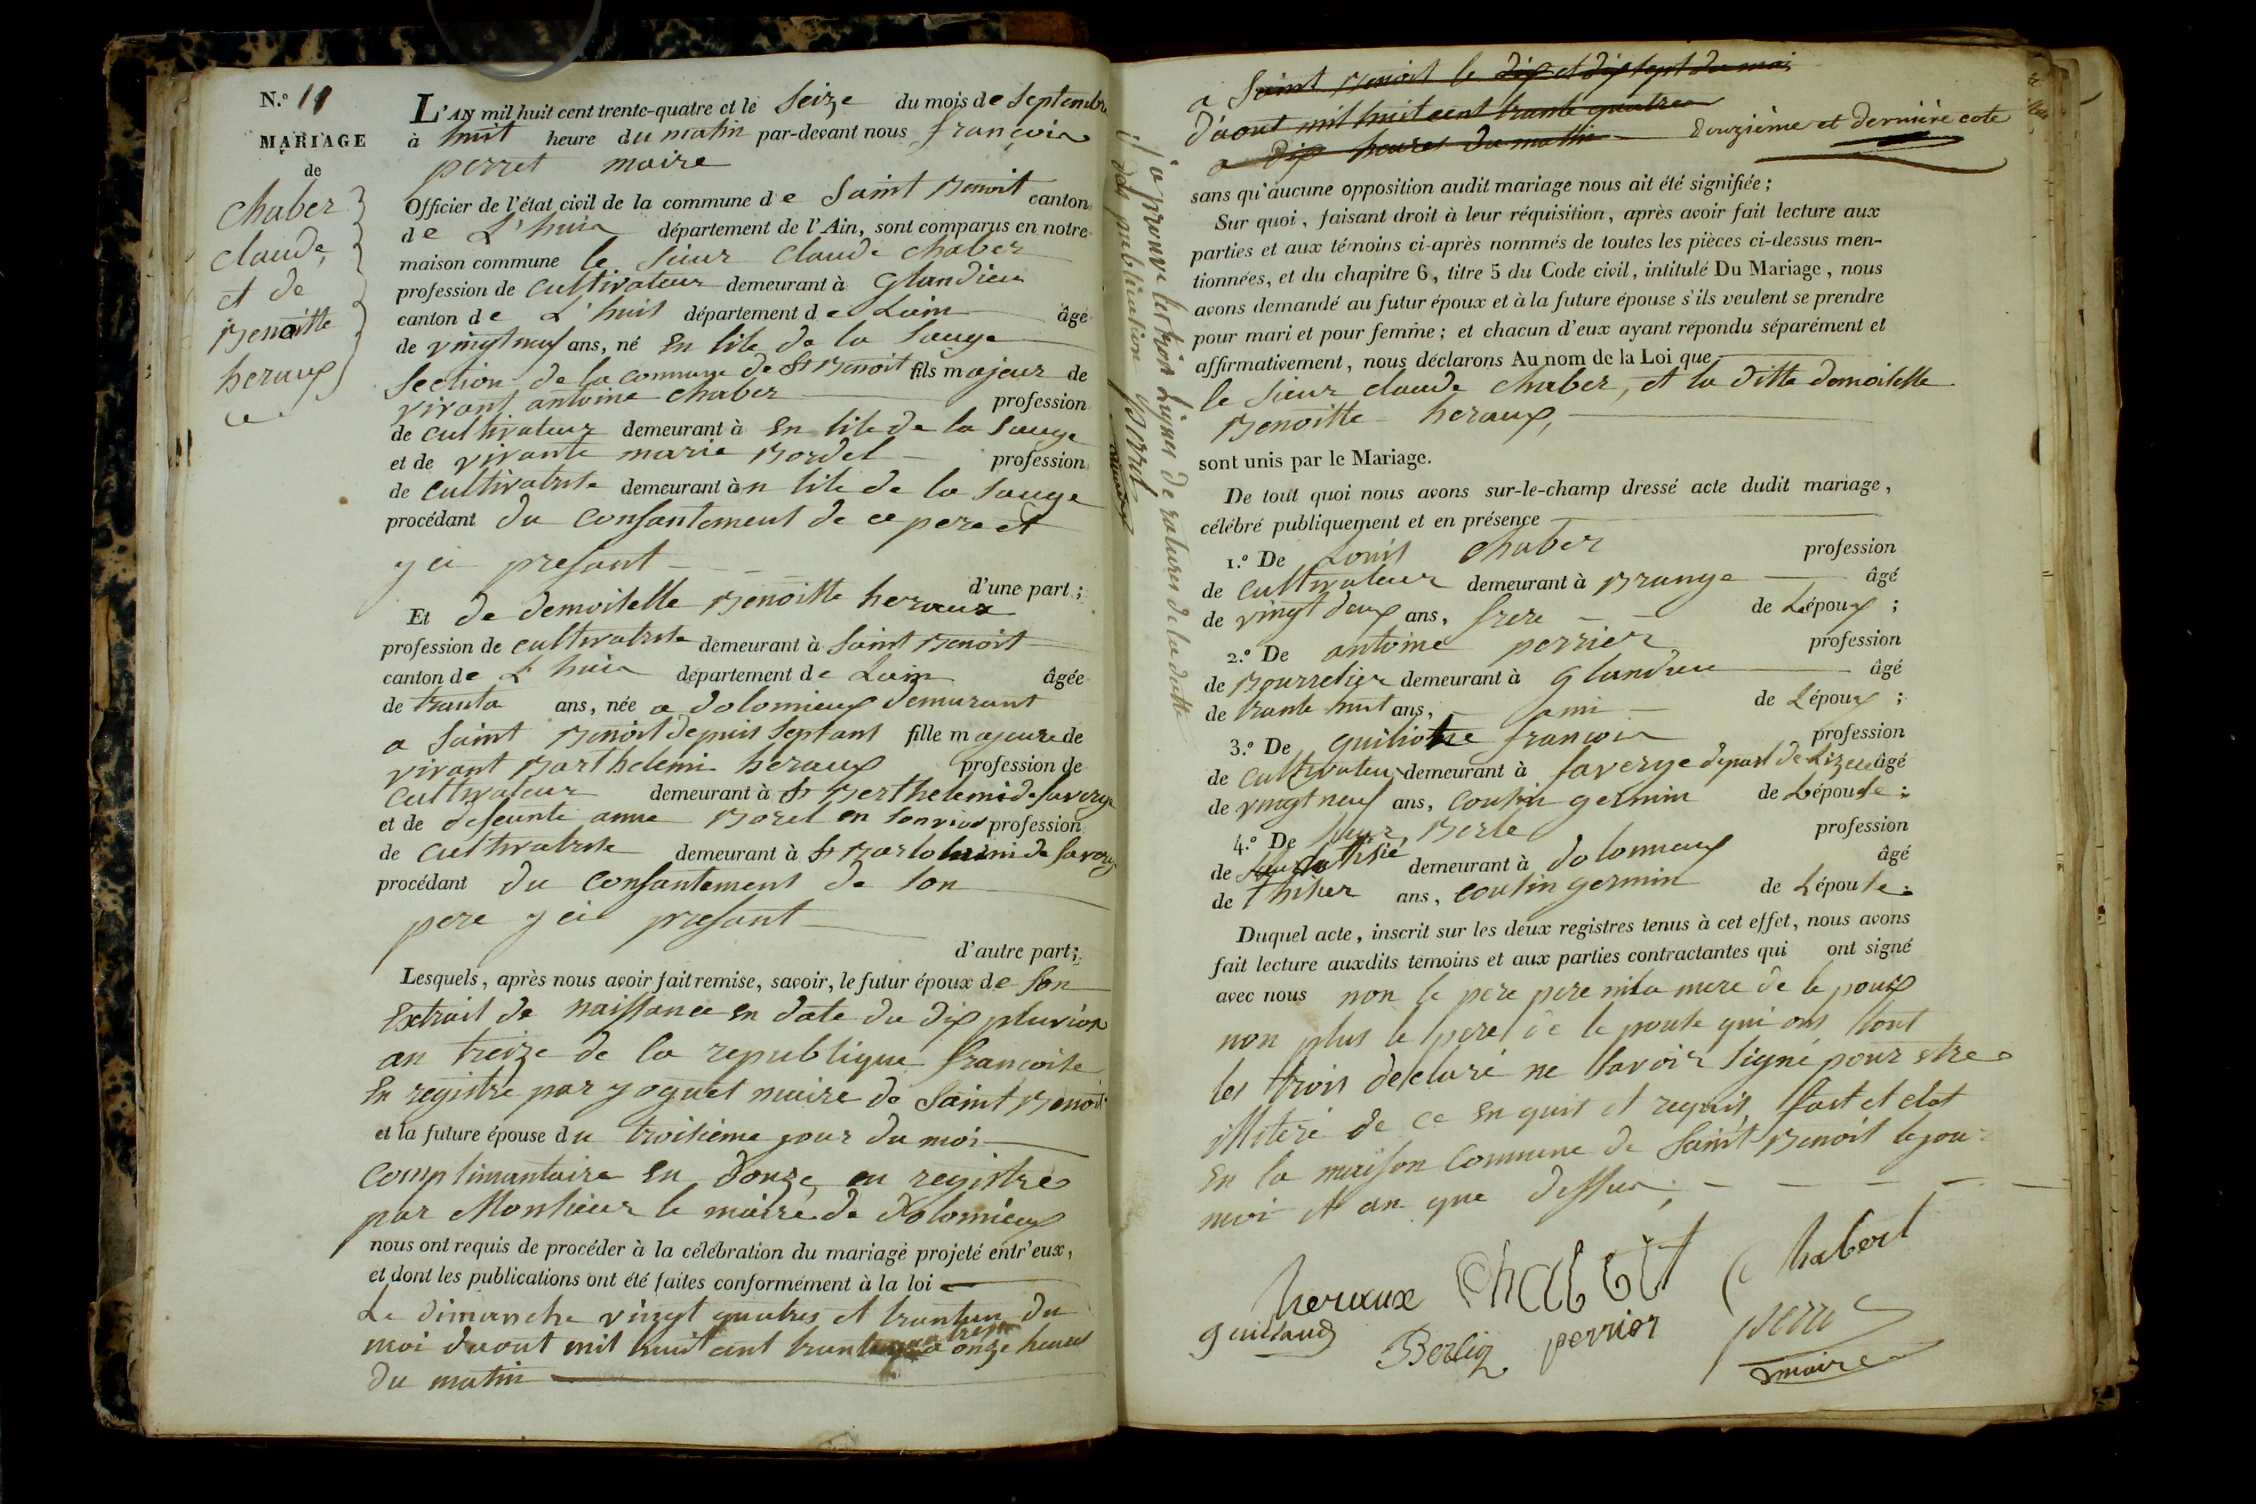 N.º 11
MARIAGE
de
Chaber
claude,
et de
Benoitte
heraux
L'AN mil huit cent trente-quatre et le seize du mojs de septembre
à huit heure du matin par-devant nous françois
perret maire
Officier de l'état civil de la commune de Saint Benoit canton
de L'huis département de l'Ain, sont comparus en notre
maison commune le sieur claude chaber
profession de cultivateur demeurant à Glandieu
canton de L'huis département de Lain âgé
de vingt neuf ans, né en lile de la Sauge
Section de la commune de St Benoit fils majeur de
vivant antoine chaber profession
de cultivateur demeurant à en lile de la Sauge
et de vivante marie Bordel profession
de cultivatrise demeurant à n lile de la Sauge
procédant du consantement de ce pere et
y ci presant
d'une part;
Et de demoiselle Benoitte heraux
profession de cultivatrise demeurant à Saint Benoit
canton de L'huis département de Lain âgée
de tranta ans, née a dolomieux demurant
a Saint Benoit depuis septans fille majeure de
vivant Barthelemi heraux profession de
cultivateur demeurant à St Berthelemi de faverge
et de defeunte anne Borel en son vivant profession
de cultivatrise demeurant à St Bartolemi de faverg
procédant du consantement de son
pere y ci presant
d'autre part;
Lesquels, après nous avoir fait remise, savoir, le futur époux de son
Extrait de naissance en date du dix pluviose
an treize de la republique françoise
En registré par yoguet maire de Saint Benoit
et la future épouse du troisième jour du moi
complimantaire en douze, en registré
par Monsieur le maire de Dolomieux
nous ont requis de procéder à la célébration du mariage projeté entr'eux,
et dont les publications ont été faites conformément à la loi
Le dimanche vingt quatres et trantun du
moi daout mil huit cent trante quatre a onze heures
du matin
j'aprouve les trois Lignes de ratures de la datte
des publication perret
a Saint Benoit le dix et dix sept du moi
d'aout mil huit cent trante quatre
a dix heures du matin douzième et derniére cote
sans qu'aucune opposition audit mariage nous ait été signifiée;
Sur quoi, faisant droit à leur réquisition, après avoir fait lecture aux
parties et aux témoins ci-après nommés de toutes les pièces ci-dessus men-
tionnées, et du chapitre 6, titre 5 du Code civil, intitulé Du Mariage, nous
avons demandé au futur époux et à la future épouse s'ils veulent se prendre
pour mari et pour femme; et chacun d'eux ayant répondu séparément et
affirmativement, nous déclarons Au nom de la Loi que
le sieur claude chaber, et la ditte demoiselle
Benoitte heraux,
sont unis par le Mariage.
De tout quoi nous avons sur-le-champ dressé acte dudit mariage,
célébré publiquement et en présence
1.º De Louis chaber profession
de cultivateur demeurant à Brange âgé
de vingt deux ans, frere de L'époux;
2.º De antoine perrier profession
de Bourrelier demeurant à glandieu âgé
de trante huit ans, ami de L'époux;
3.º De françois profession
de cultivateur demeurant à faverge depart de Lizere âgé
de vingt neuf ans, cousin germin de L'épouse;
4.º De Berle profession
de demeurant à dolomieux âgé
de ans, cousin germin de L'épouse.
Duquel acte, inscrit sur les deux registres tenus à cet effet, nous avons
fait lecture auxdits témoins et aux parties contractantes qui ont signé
avec nous non le pere pere ni la mere de le poux
non plus le pere de le pouse qui ons tout
les trois declaré ne savoir signé pour etre
illiteré de ce en quis et requis, fait et clot
En la maison commune de Saint Benoit le jour
moi et an que dessus;
heraux Chabert Chabert
guillaud Berlioz perrier perret
maire